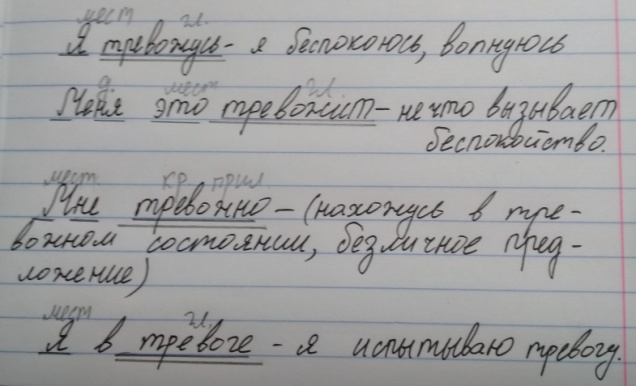 мест гл.
Я тревожусь - я беспокоюсь, волнуюсь
д. мест гл.
Меня это тревожит - нечто вызывает
беспокойство.
мест. кр. прил
Мне тревожно - (нахожусь в тре-
вожном состоянии, безличное пред-
ложение)
мест гл.
Я в тревоге - я испытываю тревогу.